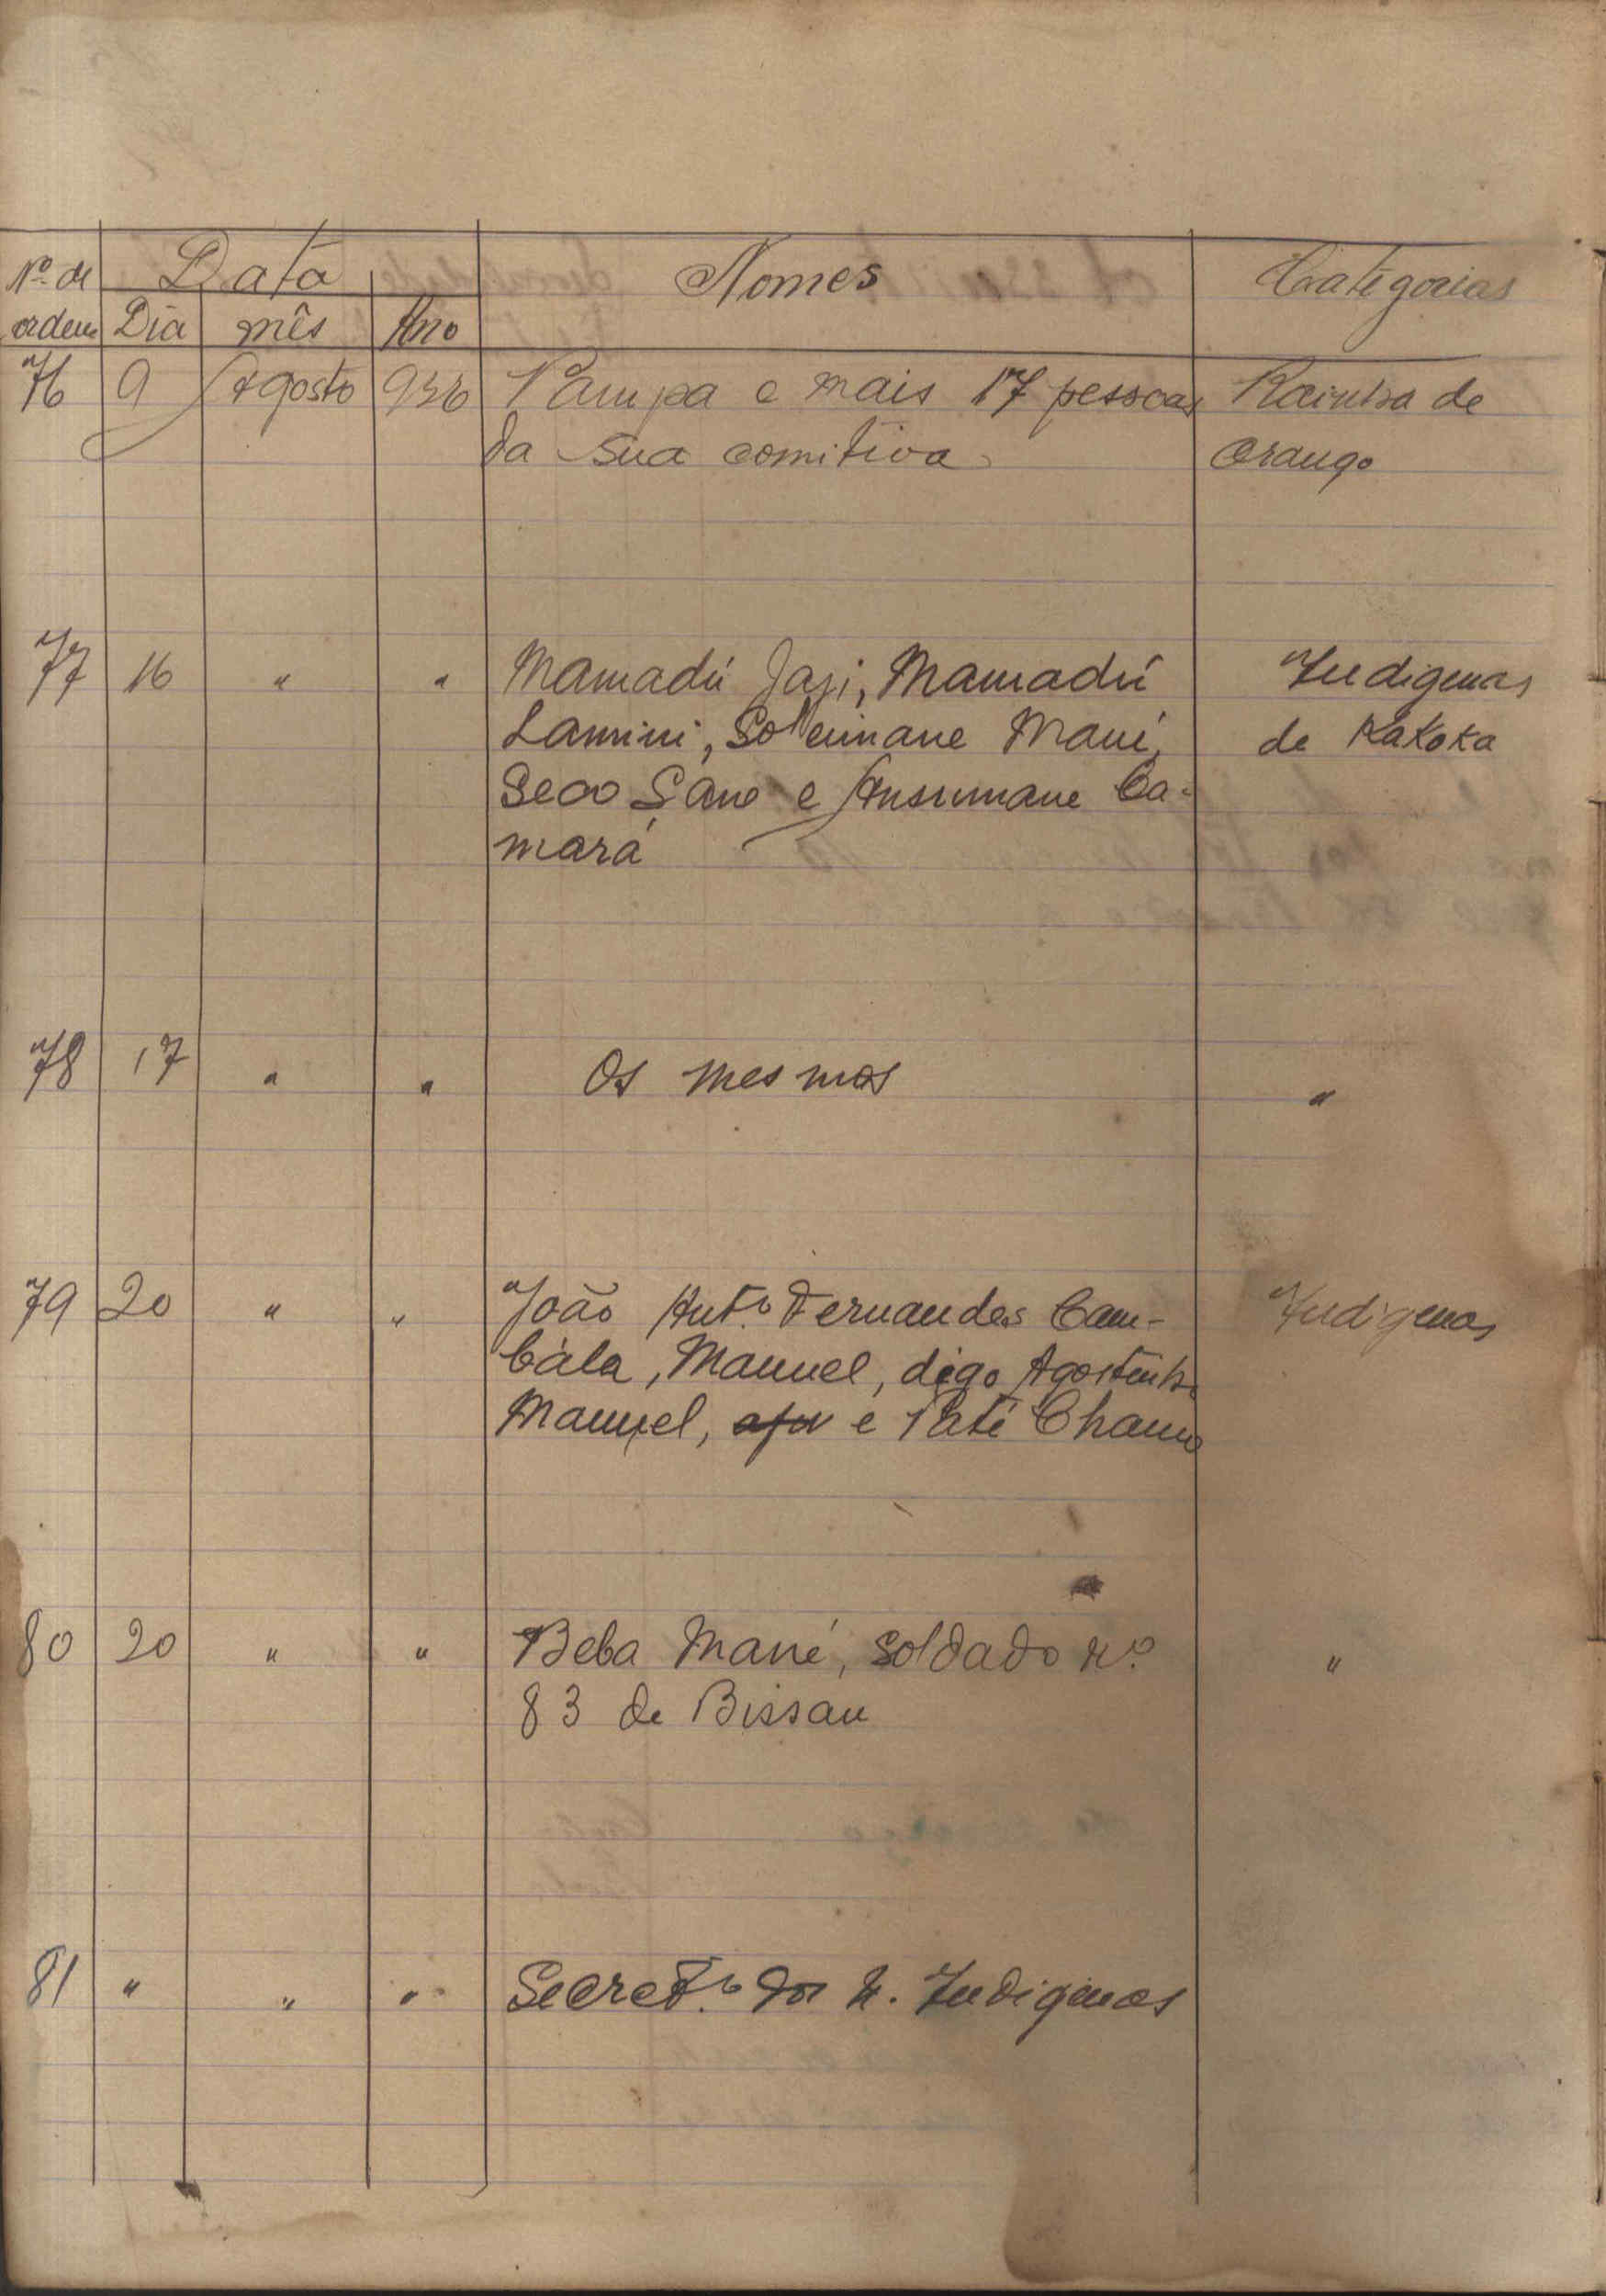 Nº de Data Nomes Categorias
ordem Dia mês Ano
76 9 Agosto 936 Pampa e mais 17 pessoas Rainha de
da sua comitiva Orango
77 16 " " Mamadú Jassi, Mamadú Indigenas
Lamini, Soleimane Mané, de Kakoka
Seco Sano e Ansumane Ca-
mará
78 17 " " Os mesmos "
79 20 " " João Antº Fernandes Cam- Indigenas
bála, Manuel, digo Agostinho
Manuel, e Paté Chamo
80 20 " " Beba Mané, soldado nº "
83 de Bissau
81 " " " Secretº dos N. Indigenas